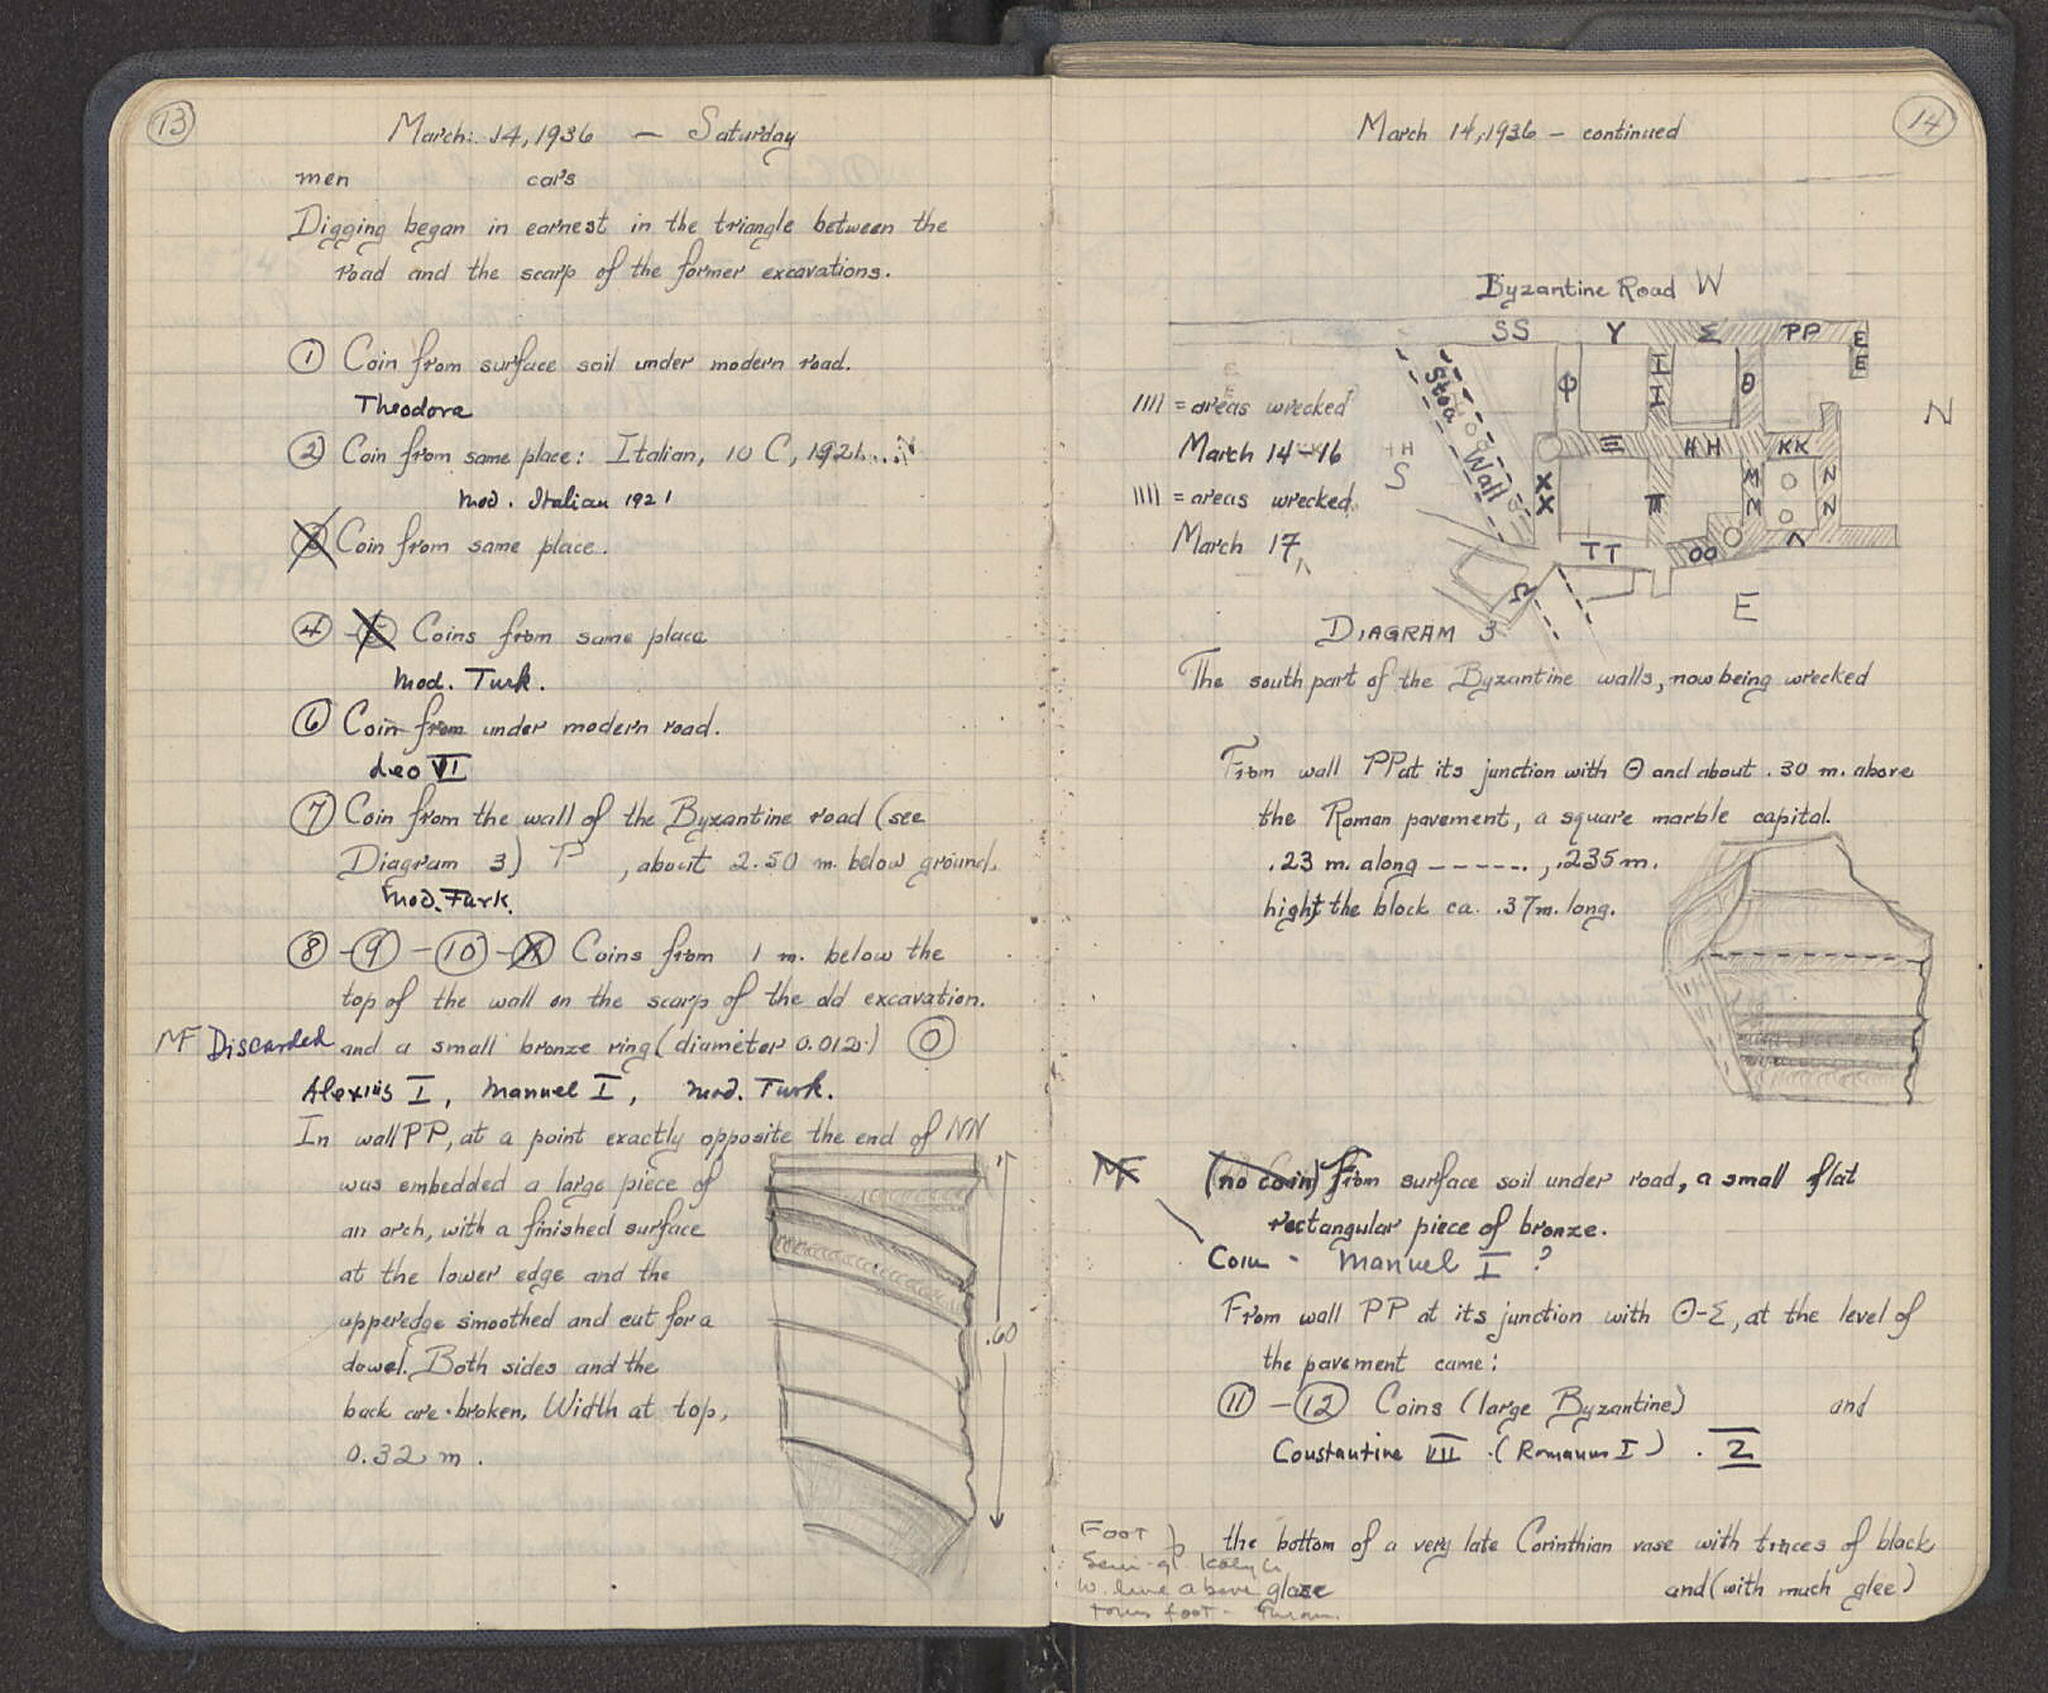 13
March: 14, 1936 — Saturday
men cars
Digging began in earnest in the triangle between the
road and the scarp of the former excavations.
1 Coin from surface soil under modern road.
Theodora
2 Coin from same place: Italian, 10 C, 1921....
Mod. Italian 1921
3 Coin from same place.
4 - 5 Coins from same place
Mod. Turk.
6 Coin from under modern road.
Leo VI
7 Coin from the wall of the Byzantine road (see
Diagram 3) P , about 2.50 m. below ground.
Mod. Turk.
8 - 9 - 10 - 11 Coins from 1 m. below the
top of the wall on the scarp of the old excavation.
MF Discarded and a small bronze ring (diameter 0.012) O
Alexius I, Manuel I, Mod. Turk.
In wall PP, at a point exactly opposite the end of NN
was embedded a large piece of
an arch, with a finished surface
at the lower edge and the
upper edge smoothed and cut for a
dowel. Both sides and the
back are broken. Width at top,
0.32 m.
.60
14
March 14, 1936 — continued
Byzantine Road W
SS Y Σ PP E E
Φ II Θ
Stoa Wall
N
//// = areas wrecked
March 14-16
S
Ξ HH KK
//// = areas wrecked
March 17
XX Π MM NN
TT OO Λ
E
DIAGRAM 3
The south part of the Byzantine walls, now being wrecked
From wall PP at its junction with Θ and about .30 m. above
the Roman pavement, a square marble capital.
.23 m. along ------, .235 m.
high; the block ca. .37 m. long.
MF (no coin) From surface soil under road, a small flat
rectangular piece of bronze.
Coin - Manuel I ?
From wall PP at its junction with Θ-Σ, at the level of
the pavement came:
11 - 12 Coins (large Byzantine) and
Constantine VII (Romanus I) . 2
Foot
the bottom of a very late Corinthian vase with traces of black
Semi-gl.
W. line above glaze and (with much glee)
torus foot -